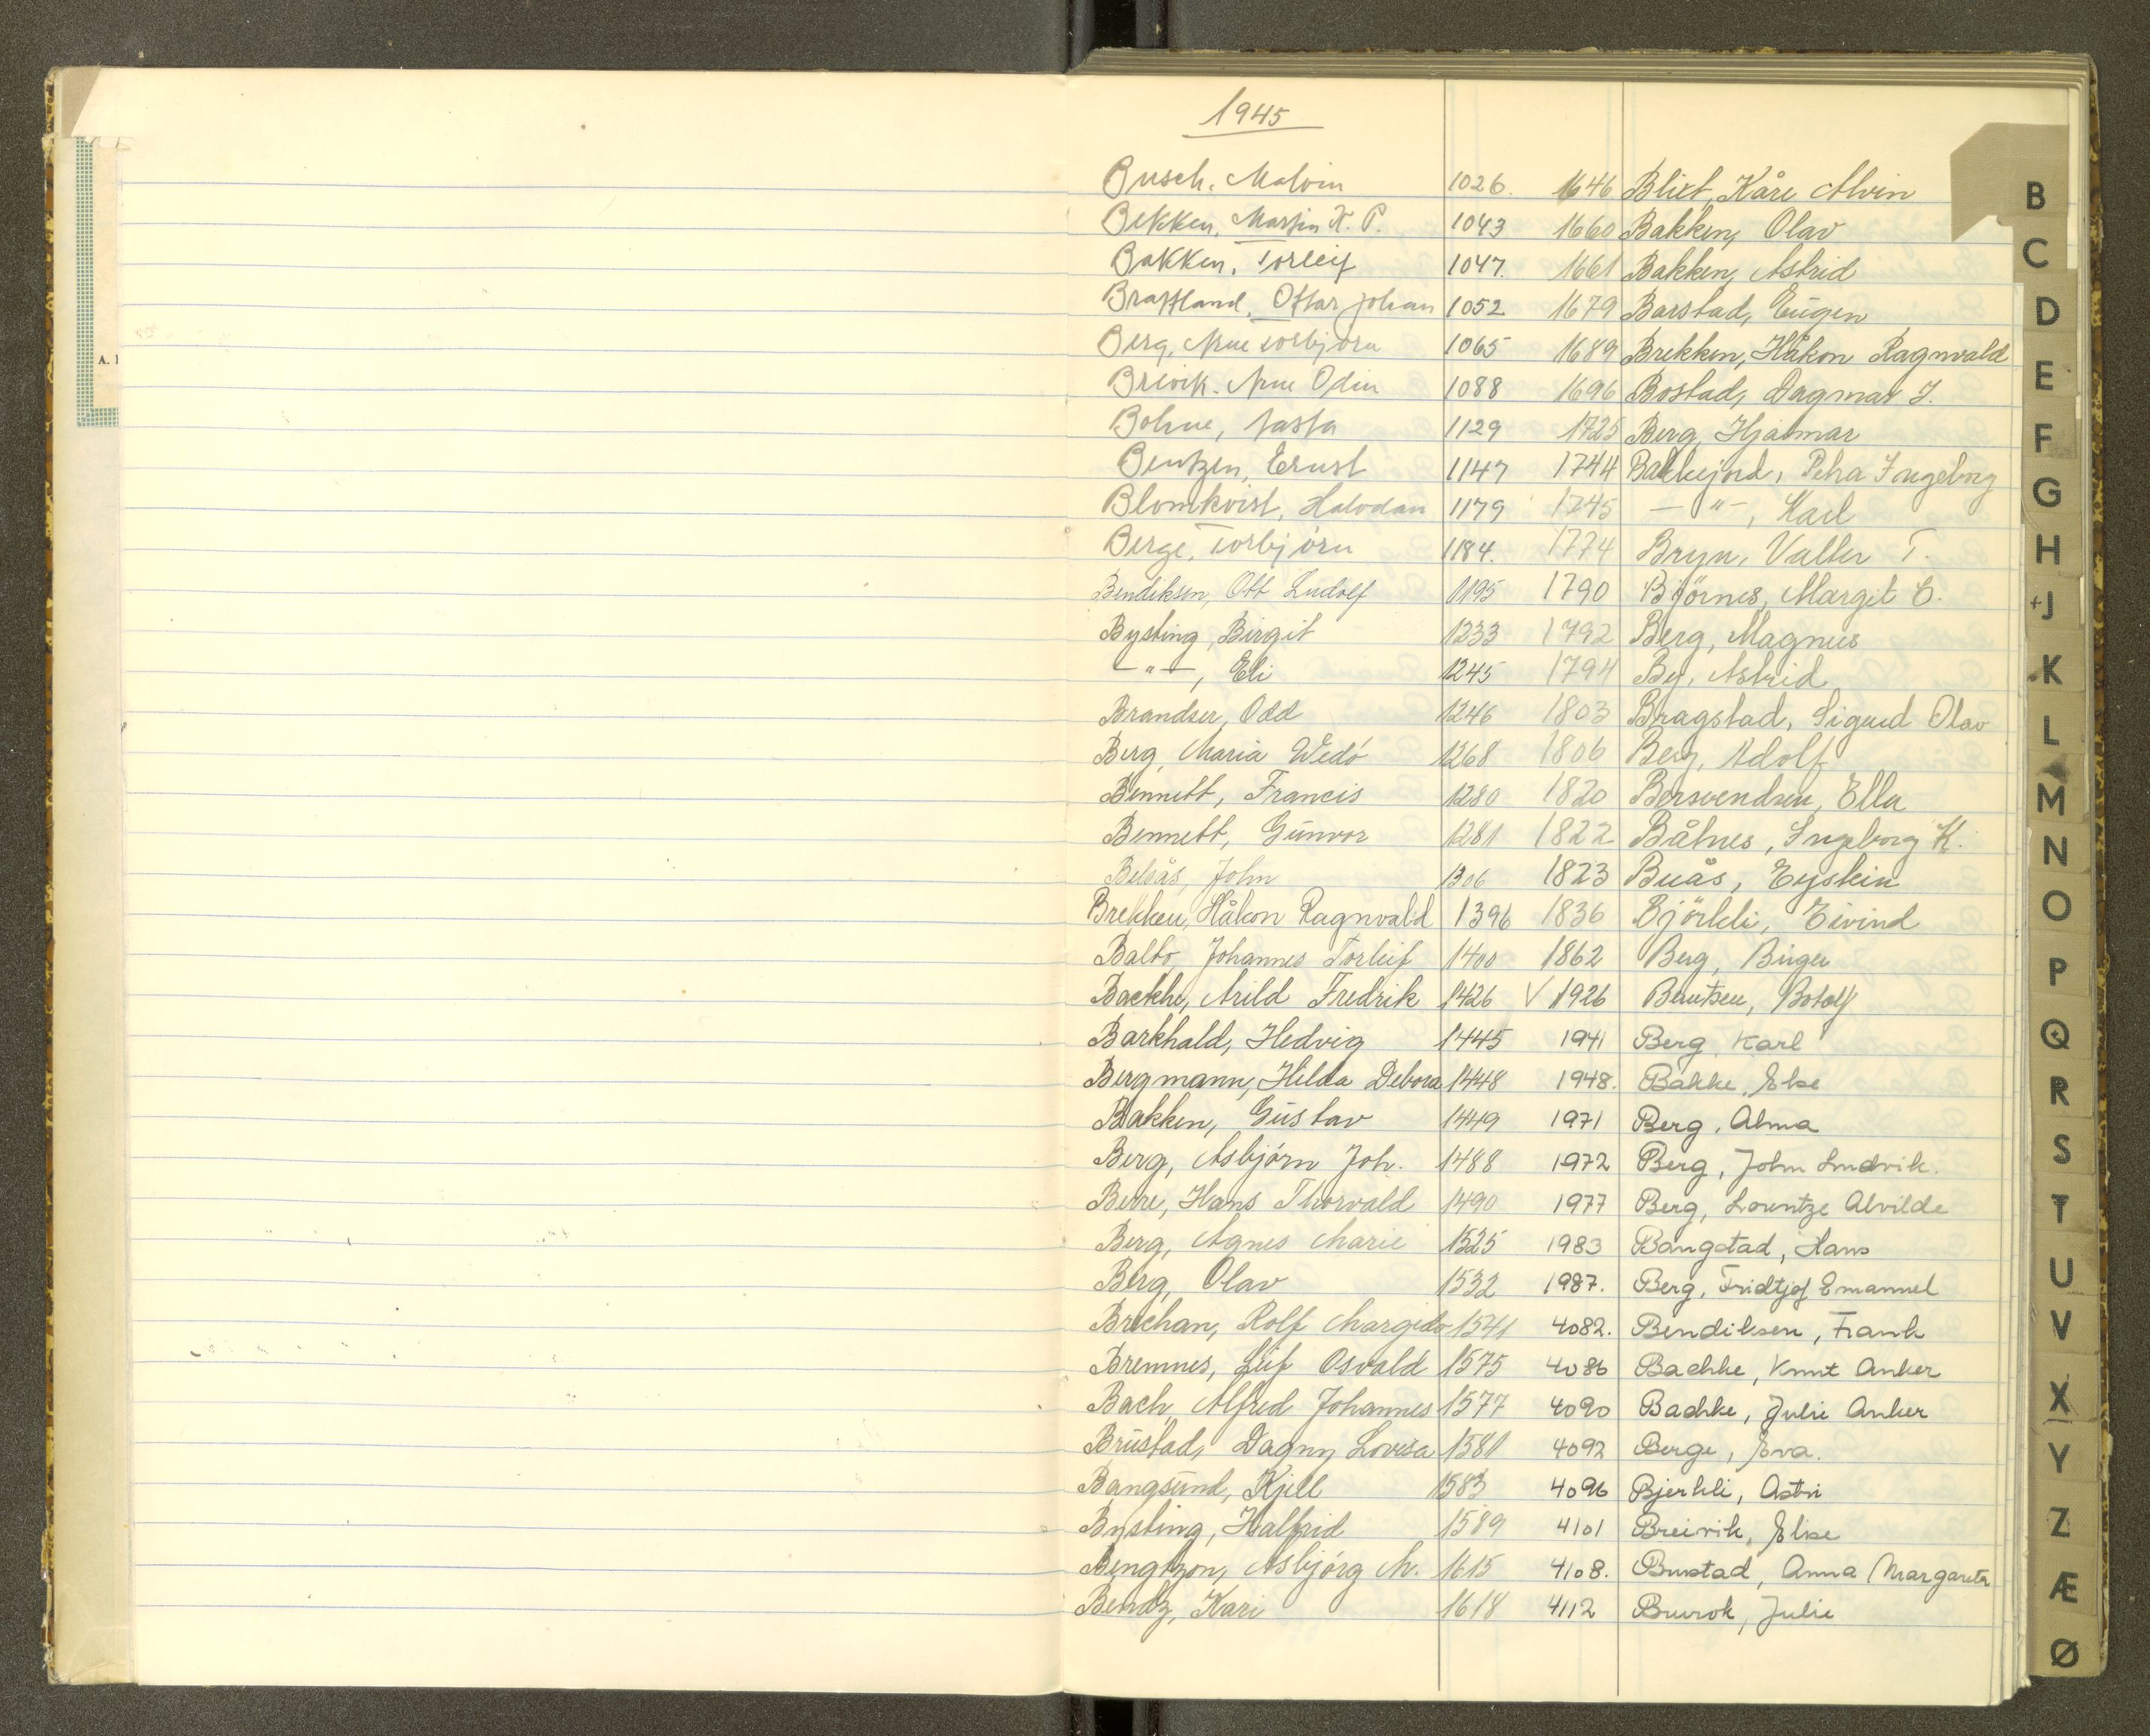 1945
Busch, Malvin 1026. 1646 Blixt, Kåre Alvin
Bekken, Martin K. P. 1043 1660 Bakken, Olav
Bakken, Torleif 1047. 1661 Bakken, Astrid
Brattland, Ottar Johan 1052 1679 Barstad, Eugen
Berg, Arne Torbjørn 1065 1689 Brekken, Håkon Ragnvald
Brevik, Arne Odin 1088 1696 Bostad, Dagmar J.
Bohne, 1129 1725 Berg, Hjalmar
Bentzen, Ernst 1147 1744 Petra Ingeborg
Blomkvist, Halvdan 1179 1745 — " —, Karl
Berge, Torbjørn 1184. 1774 Bryn, Valter T.
Bendiksen, Ott Ludolf 1195 1790 Björnes, Margit C.
Bysting, Birgit 1233 1792 Berg, Magnus
— " —, Eli 1245 1794 By, Astrid
Brandser, Odd 1246 1803 Bragstad, Sigurd Olav
Berg, Maria Wedø 1268 1806 Berg, Adolf
Bennett, Francis 1280 1820 Bersvendsen, Ella
Bennett, Gunvor 1281 1822 Båtnes, Ingeborg K.
Belsås, John 1306 1823 Buås, Eystein
Brekken, Håkon Ragnvald 1396 1836 Björkli, Eivind
Balto, Johannes Torleif 1400 1862 Berg, Birger
Backhe, Arild Fredrik 1426 V 1926 Berntsen, Botolf
Barkhald, Hedvig 1445 1941 Berg, Karl
Bergmann, Hilda Debora 1448 1948. Bakke, Else
Bakken, Gustav 1449 1971 Berg, Alma
Berg, Asbjørn Joh. 1488 1972 Berg, John Ludvik.
Berre, Hans Thorvald 1490 1977 Berg, Lorentze Alvilde
Berg, Agnes Marie 1525 1983 Bangstad, Hans
Berg, Olav 1532 1987. Berg, Fridtjof Emanuel
Brechan, Rolf Margido 1541 4082. Bendiksen, Frank
Bremnes, Leif Osvald 1575 4086 Bachke, Knut Anker
Bach, Alfred Johannes 1577 4090 Bachke, Julie Anker
Brustad, Dagny Lovisa 1581 4092 Berge, Eva.
Bangsund, Kjell 1583 4096 Bjerkli, Astri
Bysting, Halfrid 1589 4101 Breivik, Else
Bengtzon, Asbjørg M. 1615 4108. Bustad, Anna Margareta
Bendz, Kari 1618 4112 Buvrok, Julie
A.
B
C
D
E
F
G
H
+J
K
L
M
N
O
P
Q
R
S
T
U
V
X
Y
Z
Æ
Ø